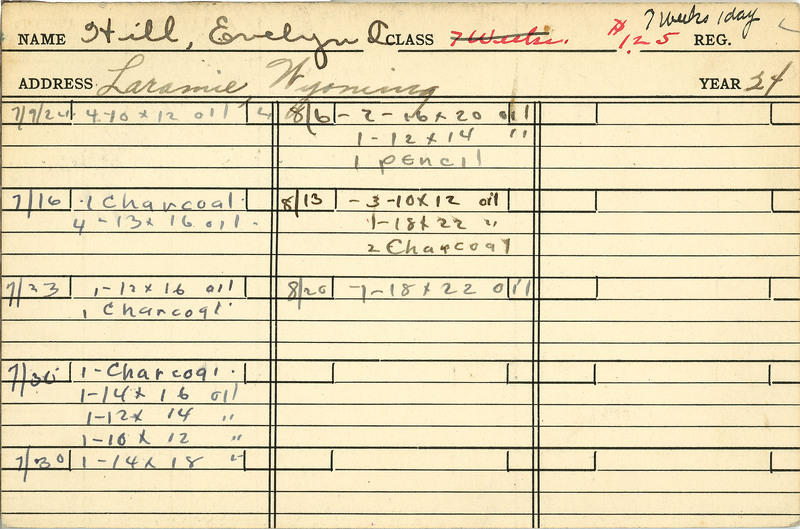 7 Weeks 1 day
NAME Hill, Evelyn CLASS 7 Weeks. $1.25 REG.
ADDRESS Laramie, Wyoming YEAR 24
7/9/24 4-10 x 12 oil 4
7/16 1 Charcoal.
4 - 13 x 16 oil.
7/23 1-12 x 16 oil
1 Charcoal
7/30 1-Charcoal.
1-14 x 16 oil
1-12 x 14 "
1-10 x 12 "
7/30 1-14 x 18 "
8/6 - 2 - 16 x 20 oil
1 - 12 x 14 "
1 pencil
8/13 - 3 - 10 x 12 oil
1-18 x 22 "
2 Charcoal
8/20 -1-18 x 22 oil